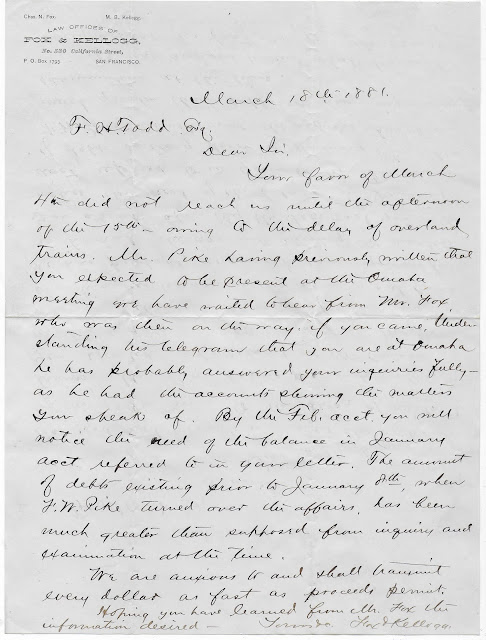 Chas. N. Fox. M. S. Kellogg.
LAW OFFICES OF
FOX & KELLOGG,
No. 530 California Street,
P. O. Box 1795 SAN FRANCISCO.
March 18th 1881.
F. H. Todd Esq.
Dear Sir.
Your favor of March
4th did not reach us until the afternoon
of the 15th - owing to the delay of overland
trains. Mr. Pike having previously written that
you expected to be present at the Omaha
meeting we have waited to hear from Mr. Fox
who was then on the way, if you came. Under-
standing his telegram that you are at Omaha
he has probably answered your inquiries fully -
as he had the accounts showing the matters
you speak of. By the Feb. acct. you will
notice the need of the balance in January
acct. referred to in your letter. The amount
of debts existing prior to January 8th, when
F. W. Pike turned over the affairs, has been
much greater than supposed from inquiry and
examination at the time.
We are anxious to and shall transmit
every dollar as fast as proceeds permit.
Hoping you have learned from Mr. Fox the
information desired - Fox & Kellogg.